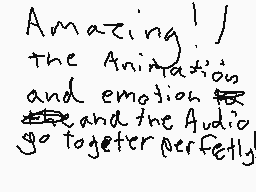 Amazing!!
the Animation
and emotion
and the Audio
go togeter perfetly!